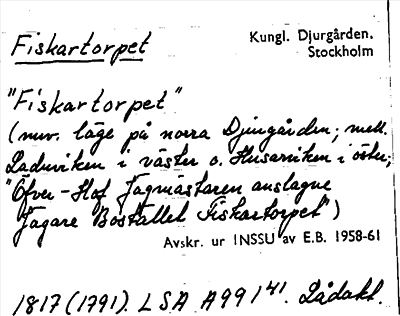 Fiskartorpet
Kungl. Djurgården.
Stockholm
"Fiskartorpet"
(nuv. läge på norra Djurgården; mell.
Laduviken i väster o. Husarviken i öster;
"Öfver-Hof Jägmästaren anslagne
Jägare Bostället Fiskartorpet")
Avskr. ur INSSU av E.B. 1958-61
1817 (1791). LSA A99 1:41. Lådakt.